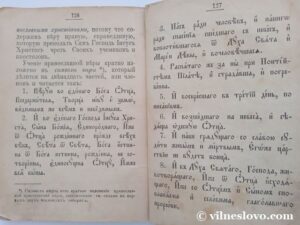 126
называемъ христіанскою, потому что со-
держимъ вѣру правую, праведную,
которую преподалъ Самъ Господь Іисусъ
Христосъ чрезъ Своихъ учениковъ и
апостоловъ.
Ученіе православной вѣры кратко из-
ложено въ символѣ вѣры *), который
дѣлится на двѣнадцать частей, или чле-
новъ и читается такъ:
1. Вѣрую во єдинаго Бога Отца,
Вседержителѧ, Творца небꙋ и земли,
видимымъ же всѣмъ и невидимымъ.
2. И во єдинаго Господа Іисꙋса Хрис-
та, Сына Божіѧ, Єдинороднаго, Иже
ѿ Отца рожденнаго прежде всѣхъ
вѣкъ, Свѣта ѿ Свѣта, Бога истинна
ѿ Бога истинна, рожденна, не со-
творенна, єдиносꙋщна Отцꙋ, Имже
всѧ быша.
*) Символъ вѣры
127
3. Насъ ради человѣкъ, и нашегѡ
ради спасеніѧ сшедшаго съ небесъ, и
воплотившагосѧ ѿ Дꙋха Свѧта и
Маріи Дѣвы, и вочеловѣчшасѧ.
4. Распѧтаго же за ны при Понтій-
стѣмъ Пілатѣ, и страдавша, и погре-
бенна.
5. И воскресшаго въ третій день, по
писаніємъ.
6. И возшедшаго на небеса, и сѣ-
дѧща ѡдеснꙋю Отца.
7. И паки грѧдꙋщаго со славою сꙋ-
дити живымъ и мертвымъ, Єгѡже цар-
ствію не бꙋдетъ конца.
8. И въ Дꙋха Свѧтаго, Господа, жи-
вотворѧщаго, Иже ѿ Отца исходѧ-
щаго, Иже со Отцемъ и Сыномъ спо-
клонѧема и сславима, глаголавшаго
пророки.
© vilneslovo.com